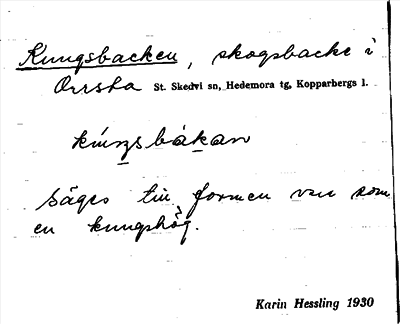 Kungsbacken, skogsbacke i
Orrsta St. Skedvi sn, Hedemora tg, Kopparbergs l.
kúŋsbàkan
Säges till formen vara som
en kungshög.
Karin Hessling 1930